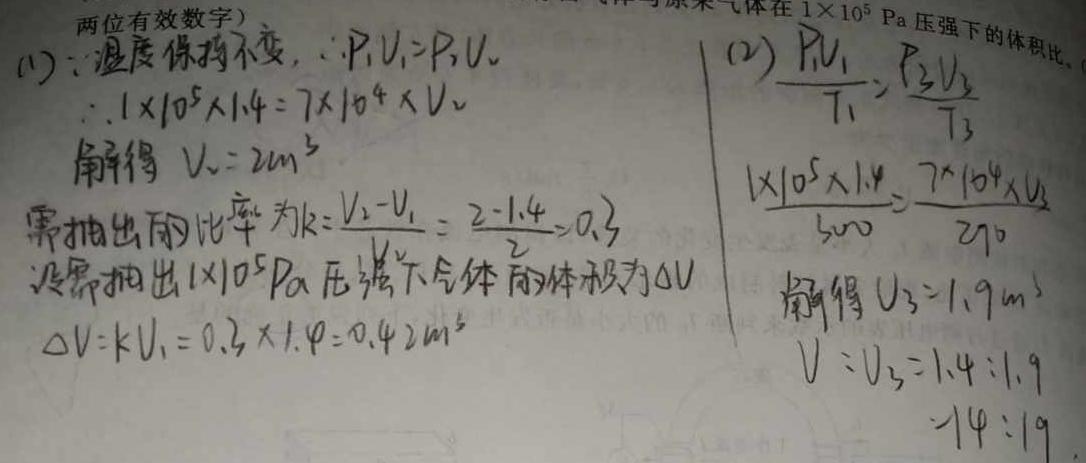 原来气体在 1×10⁵ Pa 压强下的体积比。
两位有效数字）
(1) ∵温度保持不变, ∴P₁V₁=P₂V₂
∴1×10⁵×1.4=7×10⁴×V₂
解得 V₂=2m³
需抽出的比率为k=(V₂-V₁)/V₂=(2-1.4)/2=0.3
设需抽出1×10⁵Pa压强下气体的体积为ΔV
ΔV=kV₁=0.3×1.4=0.42m³
(2) P₁V₁/T₁=P₃V₃/T₃
1×10⁵×1.4/300=7×10⁴×V₃/290
解得V₃=1.9m³
V:V₃=1.4:1.9
=14:19